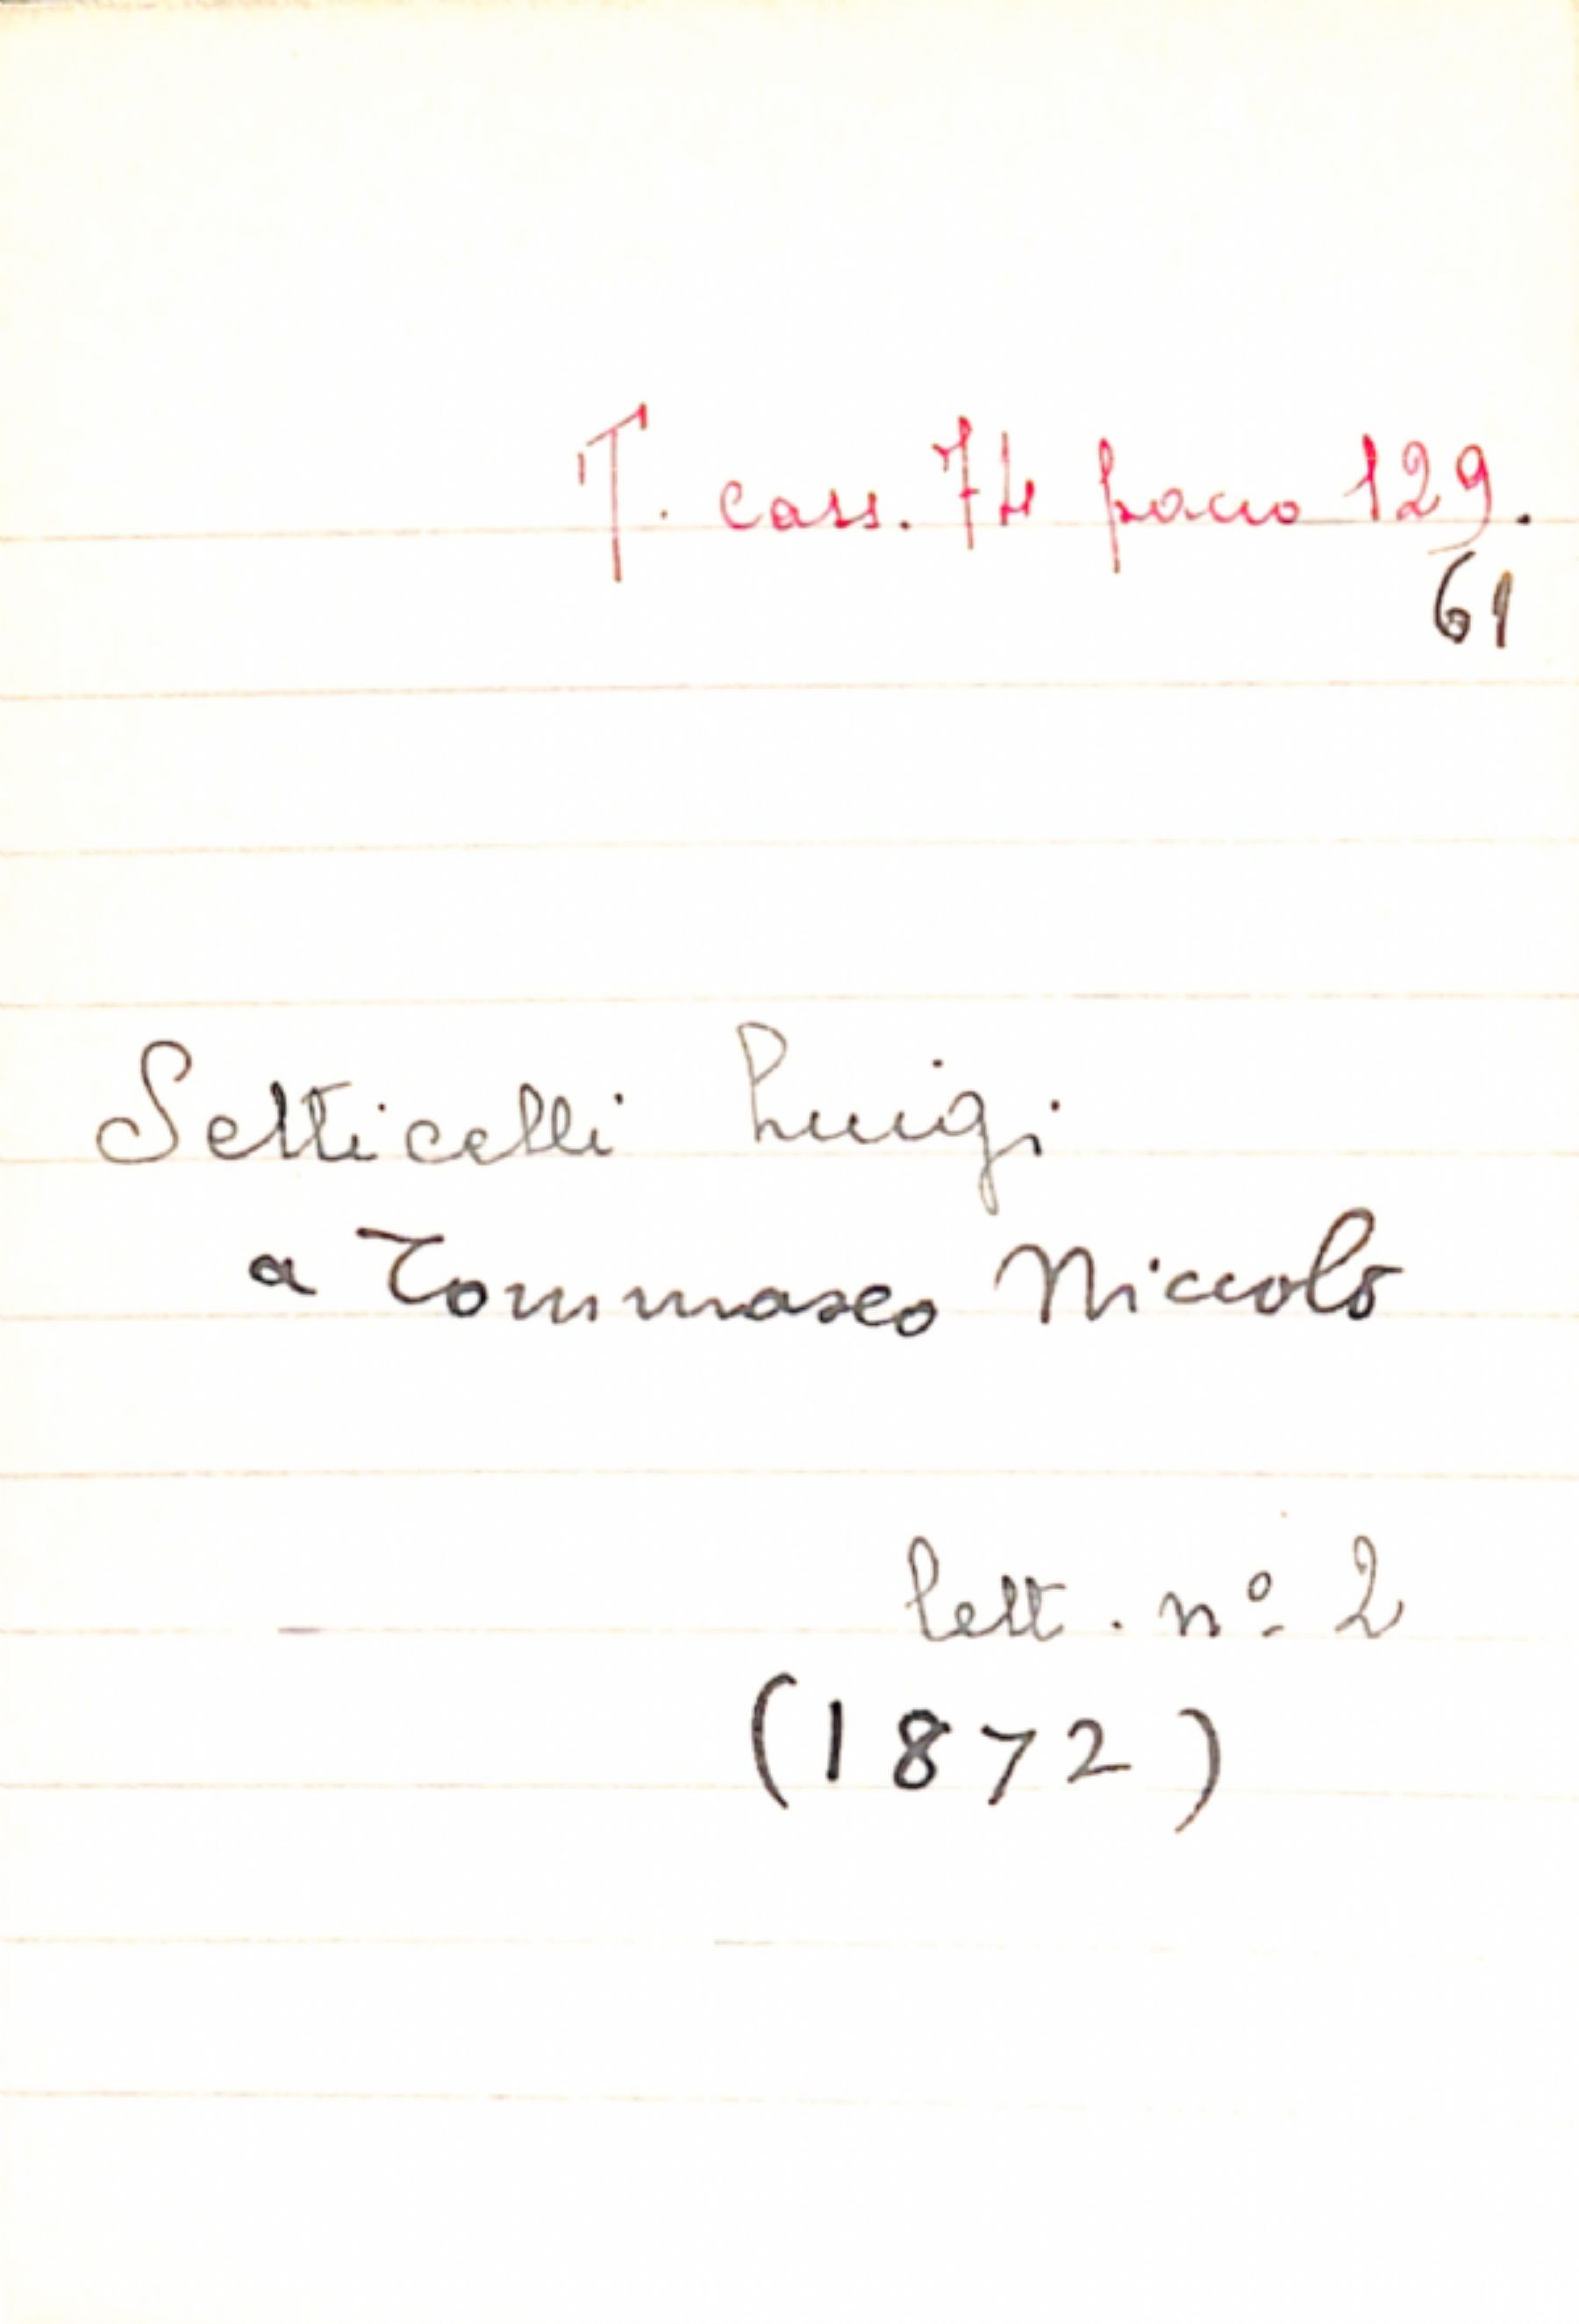 T. cass. 74 pacco 129.
61
Setticelli Luigi
a Tommaseo Niccolò
lett. nº 2
(1872)